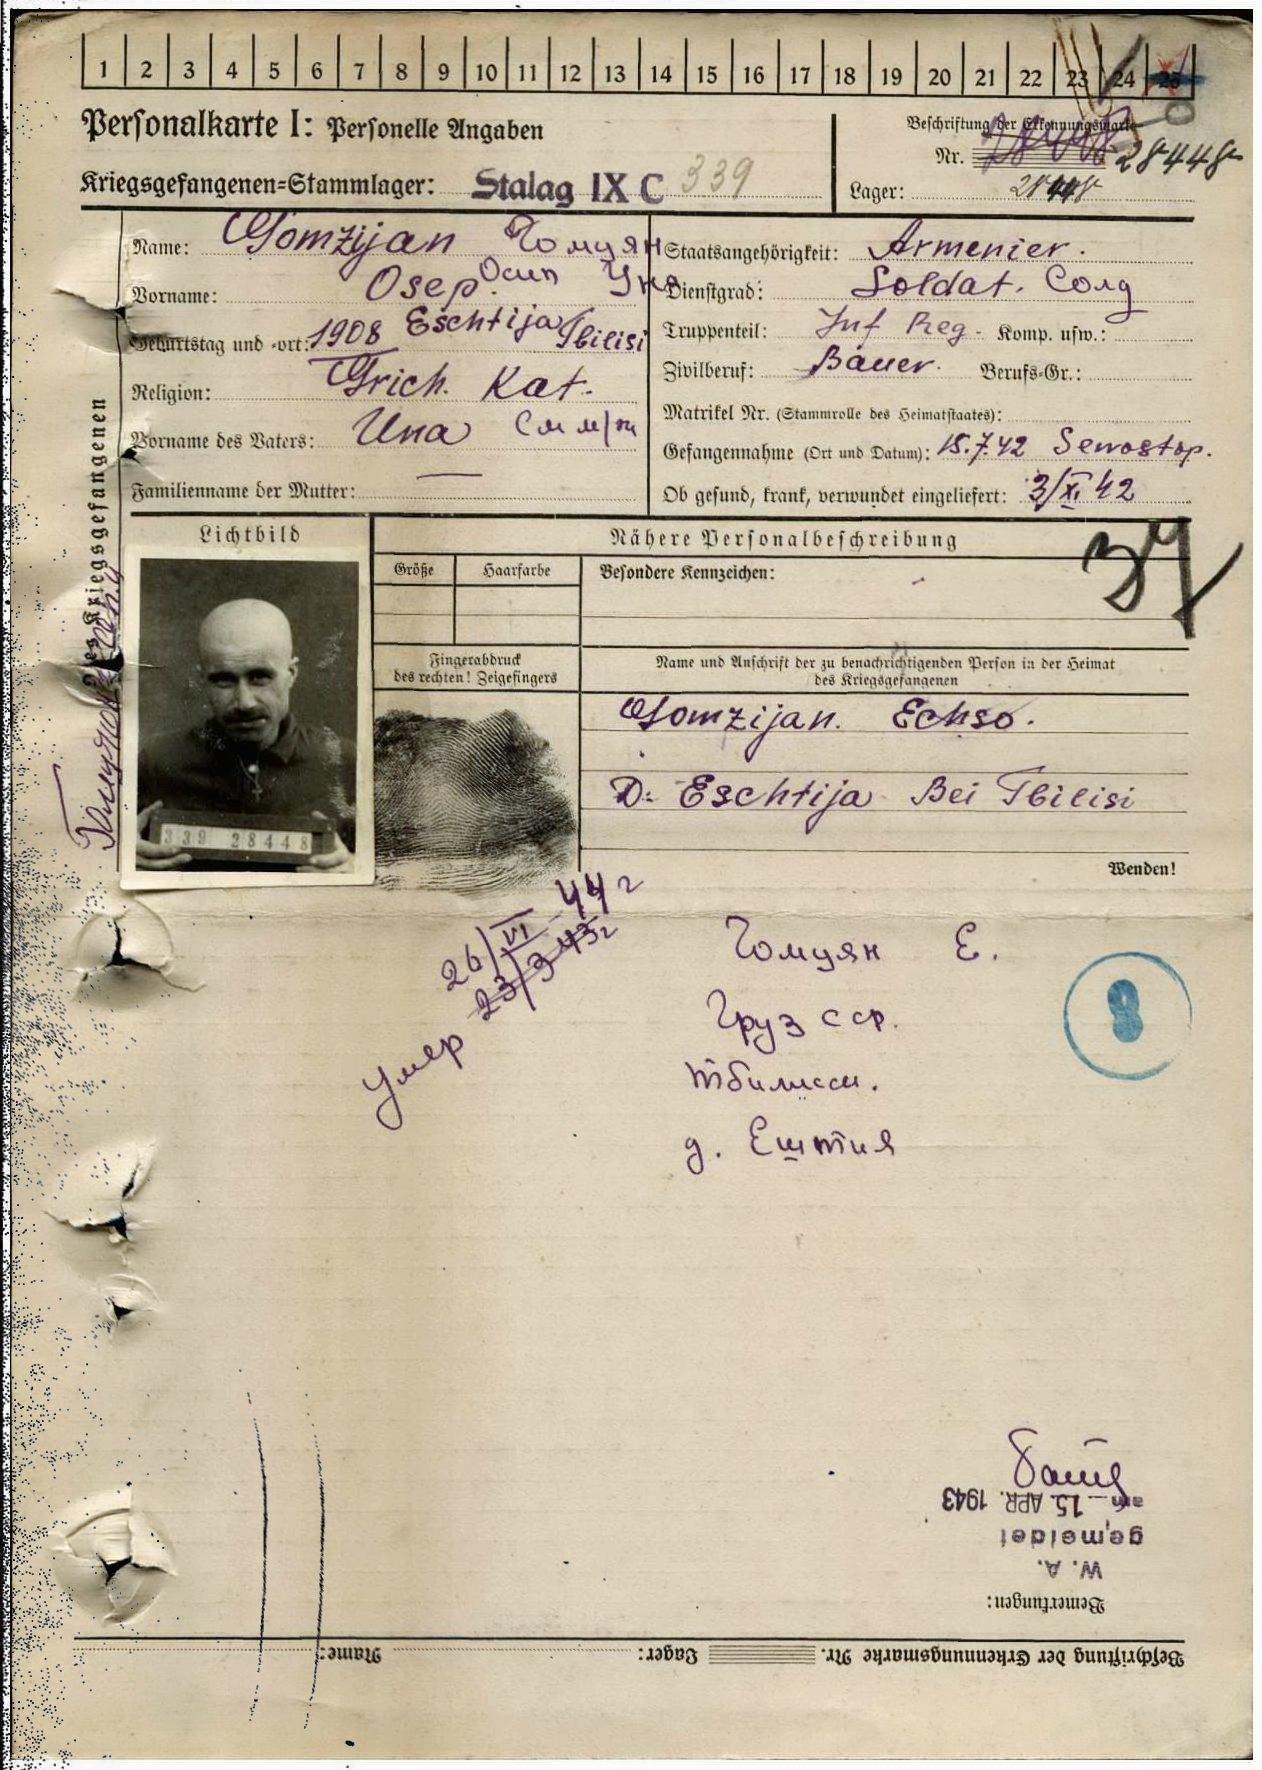 1 2 3 4 5 6 7 8 9 10 11 12 13 14 15 16 17 18 19 20 21 22 23 24 25
Personalkarte I: Personelle Angaben
Kriegsgefangenen-Stammlager: Stalag IX C 339
Beschriftung der Erkennungsmarke
Nr. 28448
Lager: 28448
Name: Gomzijan Гомцян
Vorname: Osep. Осип
Geburtstag und -ort: 1908 Eschtija Tbilisi
Religion: Grich. Kat.
Vorname des Vaters: Una
Familienname der Mutter: —
Staatsangehörigkeit: Armenier.
Dienstgrad: Soldat. Солд
Truppenteil: Inf Reg - Komp. usw.:
Zivilberuf: Bauer. Berufs-Gr.:
Matrikel Nr. (Stammrolle des Heimatstaates):
Gefangennahme (Ort und Datum): 15.7.42 Sewostop.
Ob gesund, krank, verwundet eingeliefert: 3/XI 42
des Kriegsgefangenen
Lichtbild
339 28448
Nähere Personalbeschreibung
Größe Haarfarbe
Besondere Kennzeichen:
37
Fingerabdruck
des rechten! Zeigefingers
Name und Anschrift der zu benachrichtigenden Person in der Heimat
des Kriegsgefangenen
Gomzijan. Echso.
D: Eschtija Bei Tbilisi
Wenden!
26/VI 44 г
23/3 43 г
Умер
Гомцян Е.
Груз сср.
Тбилисси.
д. Ештия
8
am 15. APR. 1943
gemeldet
W. A.
Bemerkungen:
Beschriftung der Erkennungsmarke Nr. Lager: Name: